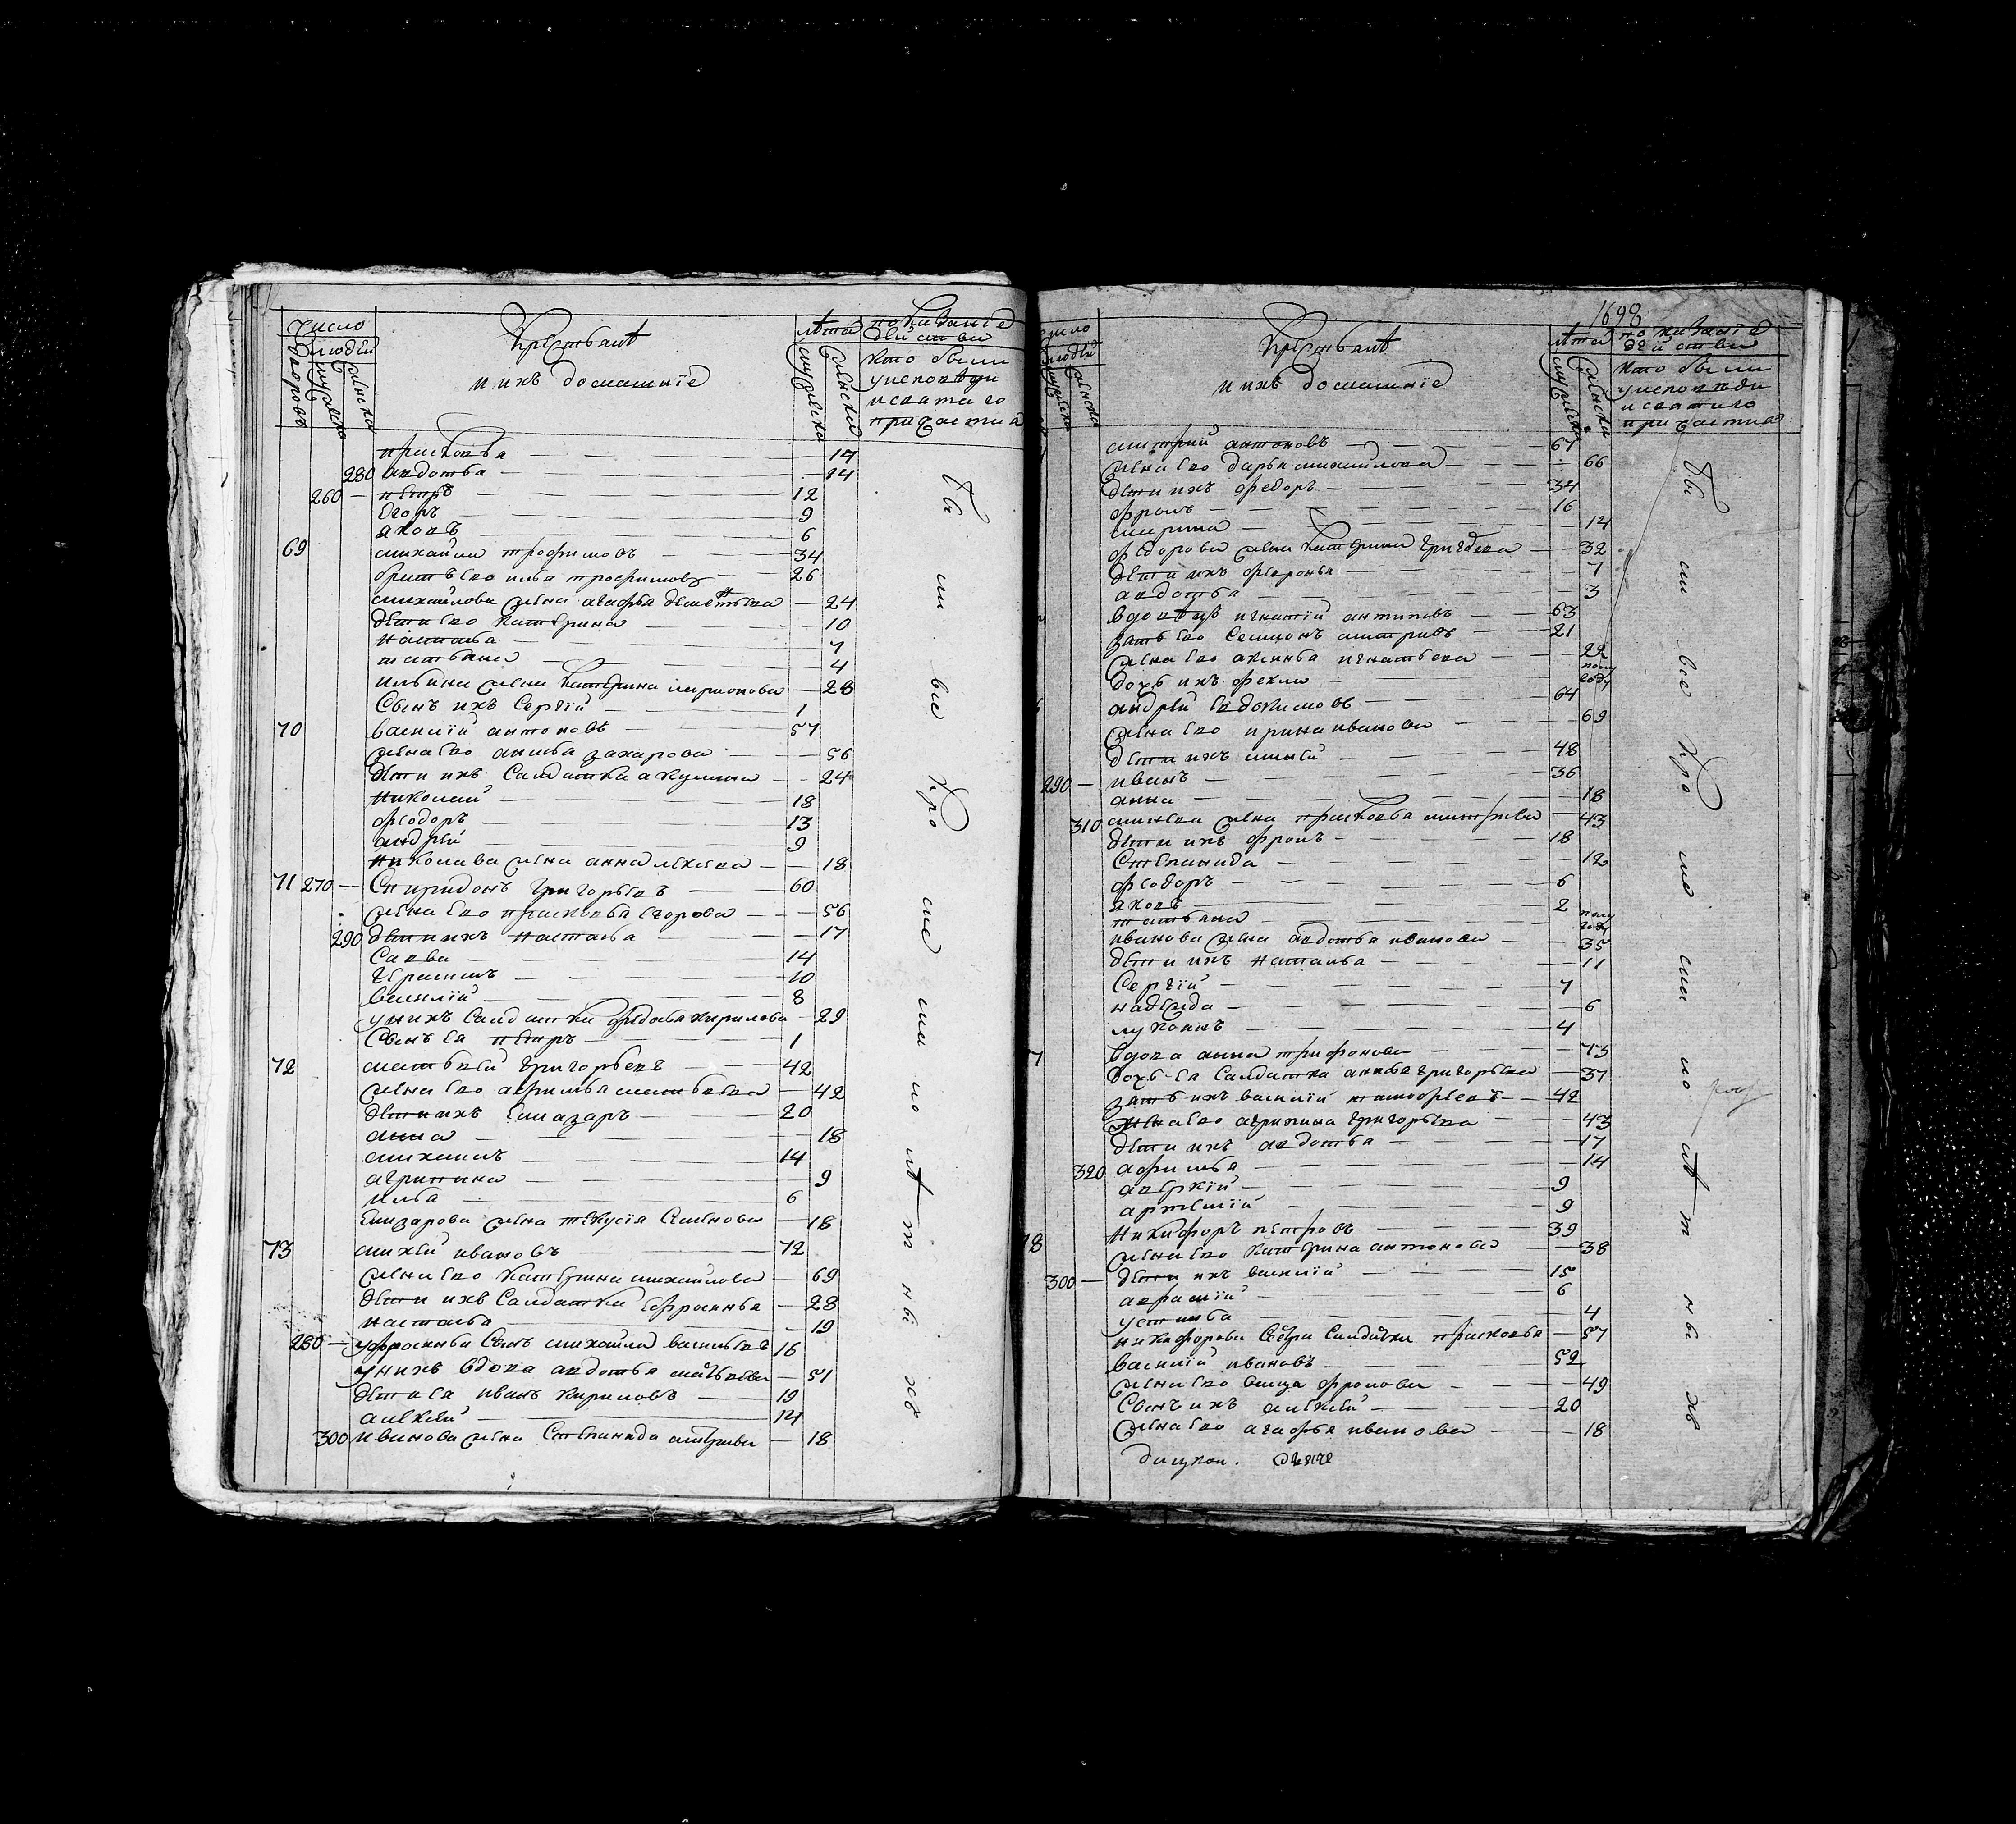 число
людей
дворовъ
мужеска
женска
Крестьянѣ
и ихъ домашнїе
лѣта
мужеска
женска
показанїе действи
кто были
у исповѣди
и святаго
причастиа
прасковья — 17
280 авдотья — 14
260 — петръ — 12
егоръ — 9
яковъ — 6
69 михайла трофимовъ — 34
братъ ево илья трофимовъ — 26
михайлова жена агафья дементьева — 24
дети ево катерина — 10
наталья — 7
татьяна — 4
ильина жена катерина миронова — 28
Сынъ ихъ Сергїй — 1
70 василїй антоновъ — 57
жена ево анисья захарова — 56
дети ихъ Салдатка акулина — 24
николай — 18
феодоръ — 13
андрей — 9
николава жена анна — 18
71 270 — Спиридонъ григорьевъ — 60
жена ево прасковья егорова — 56
290 дети ихъ наталья — 17
Савва — 14
герасимъ — 10
василїй — 8
у нихъ Салдатка федосья кирилова — 29
Сынъ ея петръ — 1
72 матвей григорьевъ — 42
жена ево афимья матвеева — 42
дети ихъ елиазаръ — 20
анна — 18
михаилъ — 14
агрипина — 9
илья — 6
елизарова жена Семенова — 18
73 михей ивановъ — 72
жена ево катерина михайлова — 69
дети ихъ Салдатка ефросинья — 28
наталья — 19
280 — уфросиньи Сынъ михайла васильевъ 16
у нихъ вдова авдотья матвеева — 51
дети ея иванъ кириловъ — 19
алексей — 14
300 иванова жена Степанида — 18
Бы ли все кро ме ма ло лѣ т ны хъ
1698
число
людей
мужеска
женска
Крестьянѣ
и ихъ домашнїе
лѣта
мужеска
женска
показанїе действи
кто были
у исповеди
и святаго
причастиа
митрий антоновъ — 67
жена ево дарья михайлова — 66
дети ихъ федоръ — 34
фролъ — 16
марина — 14
федорова жена катерина — 32
дети ихъ февронья — 7
авдотья — 3
вдовецъ игнатїй антиповъ — 63
зять ево Семионъ — 21
жена ево аксинья игнатьева — 22
дочь ихъ фекла — полу году
андрей евдокимовъ — 64
жена ево ирина иванова — 69
дети ихъ михей — 48
290 — иванъ — 36
анна — 18
310 михеева жена прасковья — 43
дети ихъ фролъ — 18
Степанида — 12
феодоръ — 6
яковъ — 2
татьяна — полу году
иванова жена авдотья иванова — 35
дети ихъ наталья — 11
Сергїй — 7
надежда — 6
лукоянъ — 4
7 вдова анна трифонова — 75
дочь ея Салдатка анисья григорьева — 37
зять ихъ василїй тимофеевъ — 42
жена ево агрипина григорьева — 43
дети ихъ авдотья — 17
320 афимья — 14
аверкїй — 9
артемїй — 9
78 никифоръ петровъ — 39
жена ево катерина антонова — 38
300 — дети ихъ василїй — 15
аврамїй — 6
устинья — 4
никифорова Сестра Салдатка прасковья — 57
василїй ивановъ — 52
жена ево фролова — 49
Сынъ ихъ алексей — 20
жена ево агафья иванова — 18
Бы ли все кро ме ма ло лѣ т ны хъ